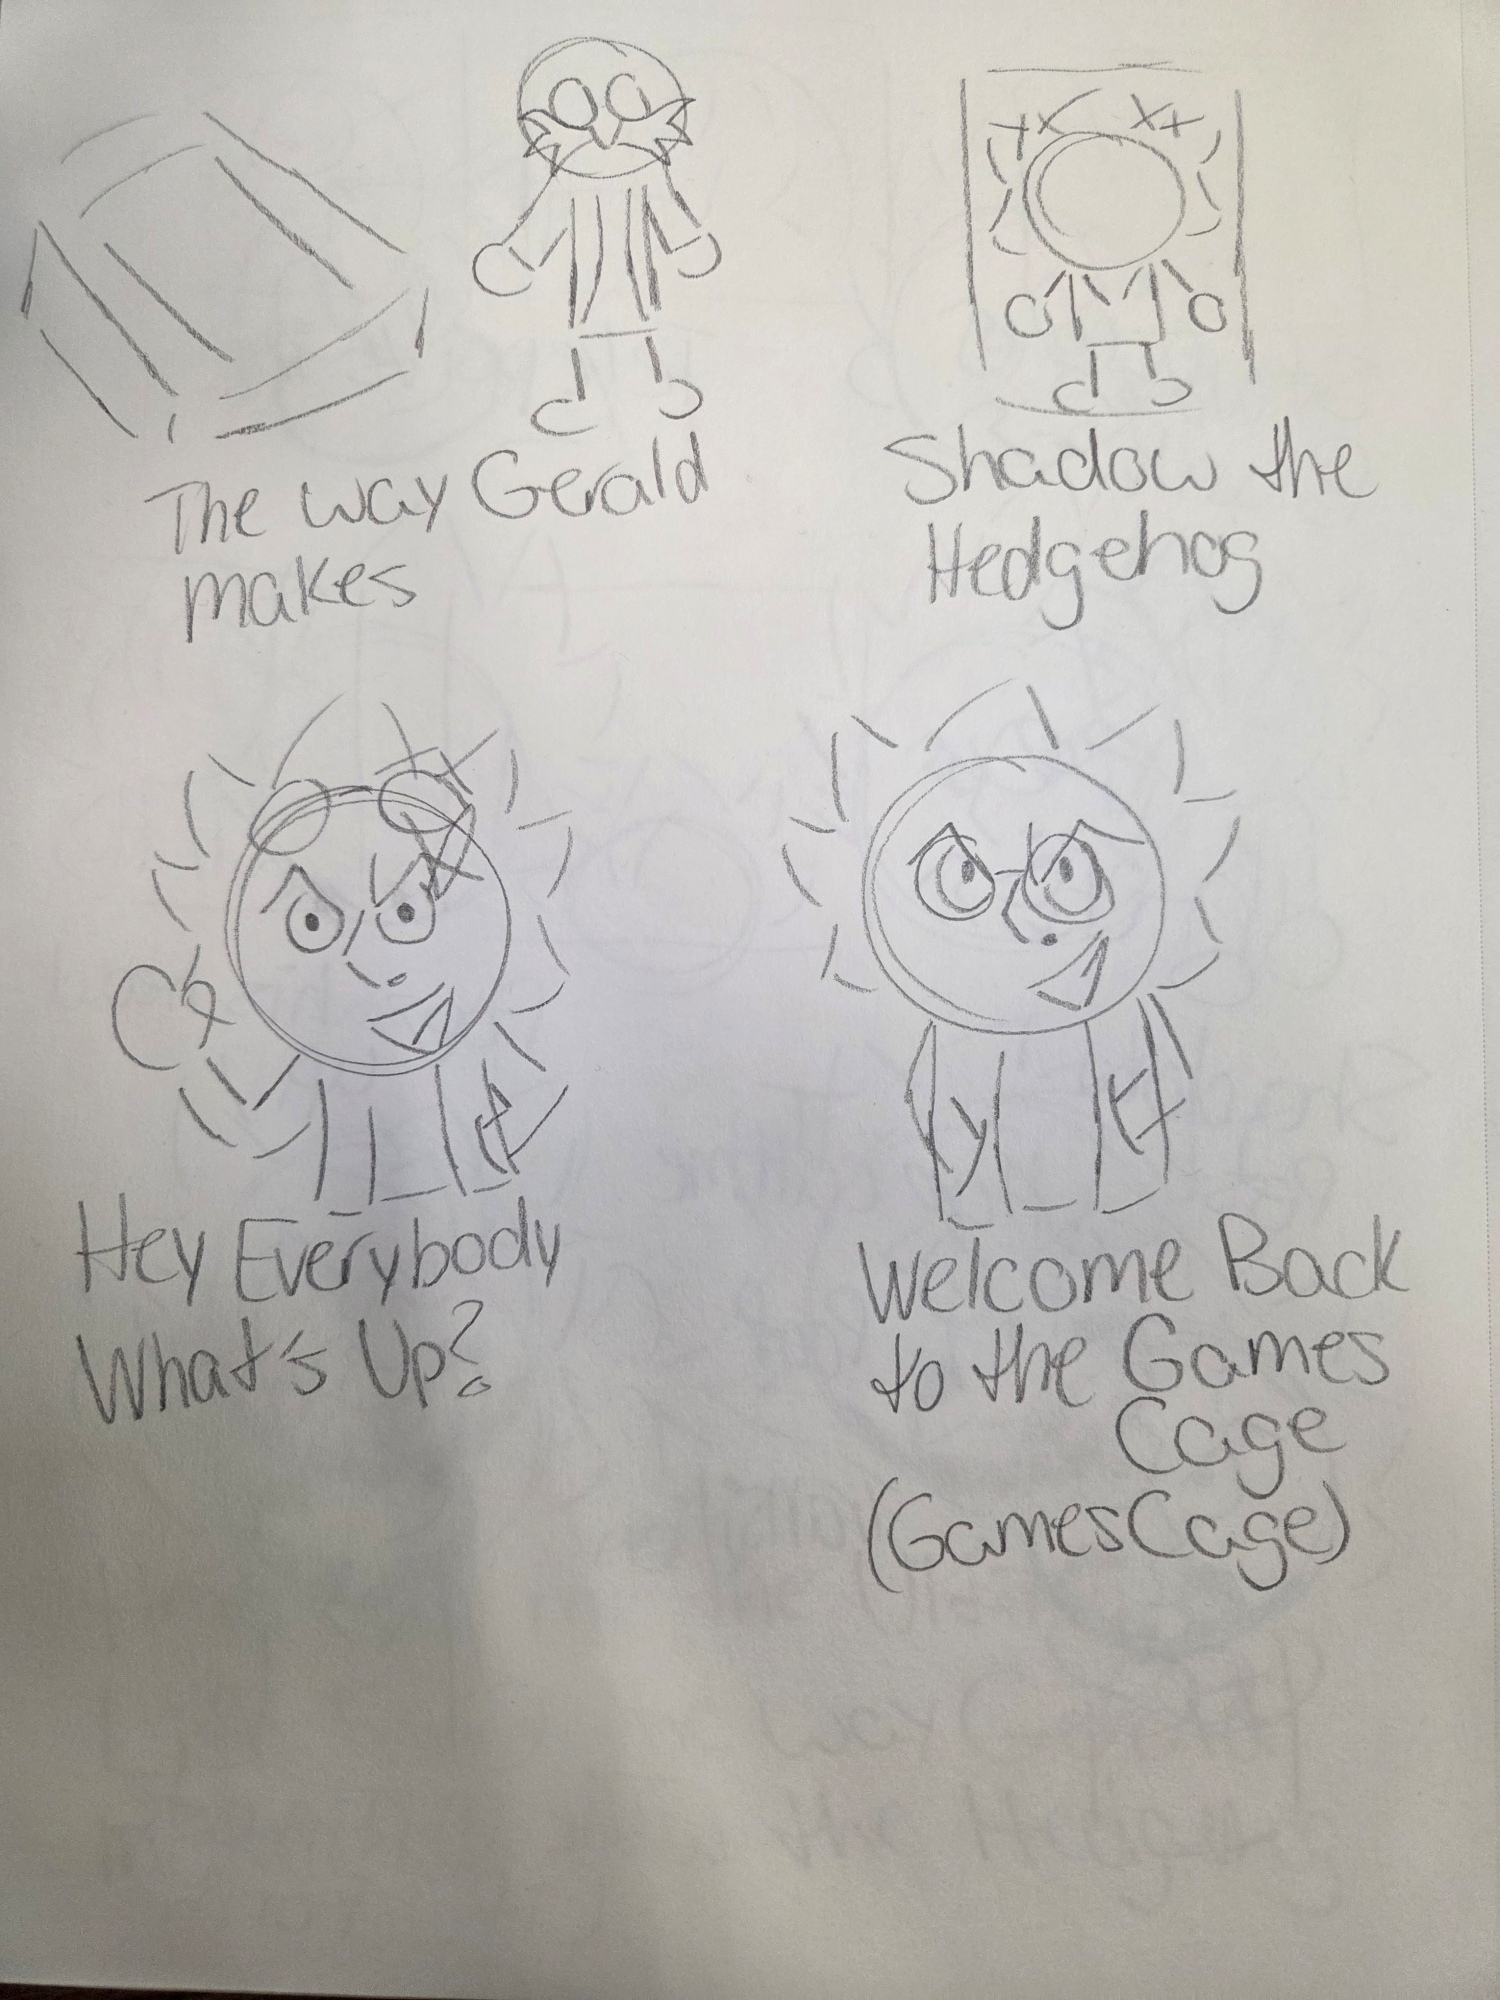 The way Gerald
makes
Shadow the
Hedgehog
Hey Everybody
What's Up?
Welcome Back
to the Games
Cage
(GamesCage)